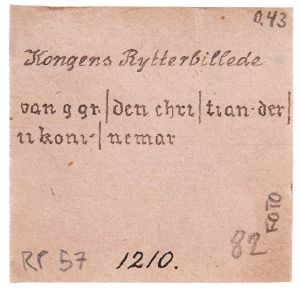 0.43
Kongens Rytterbillede
van g gr. | den chri | tian · der |
ii koni · | nemar
FOTO
82
RP 57
1210.